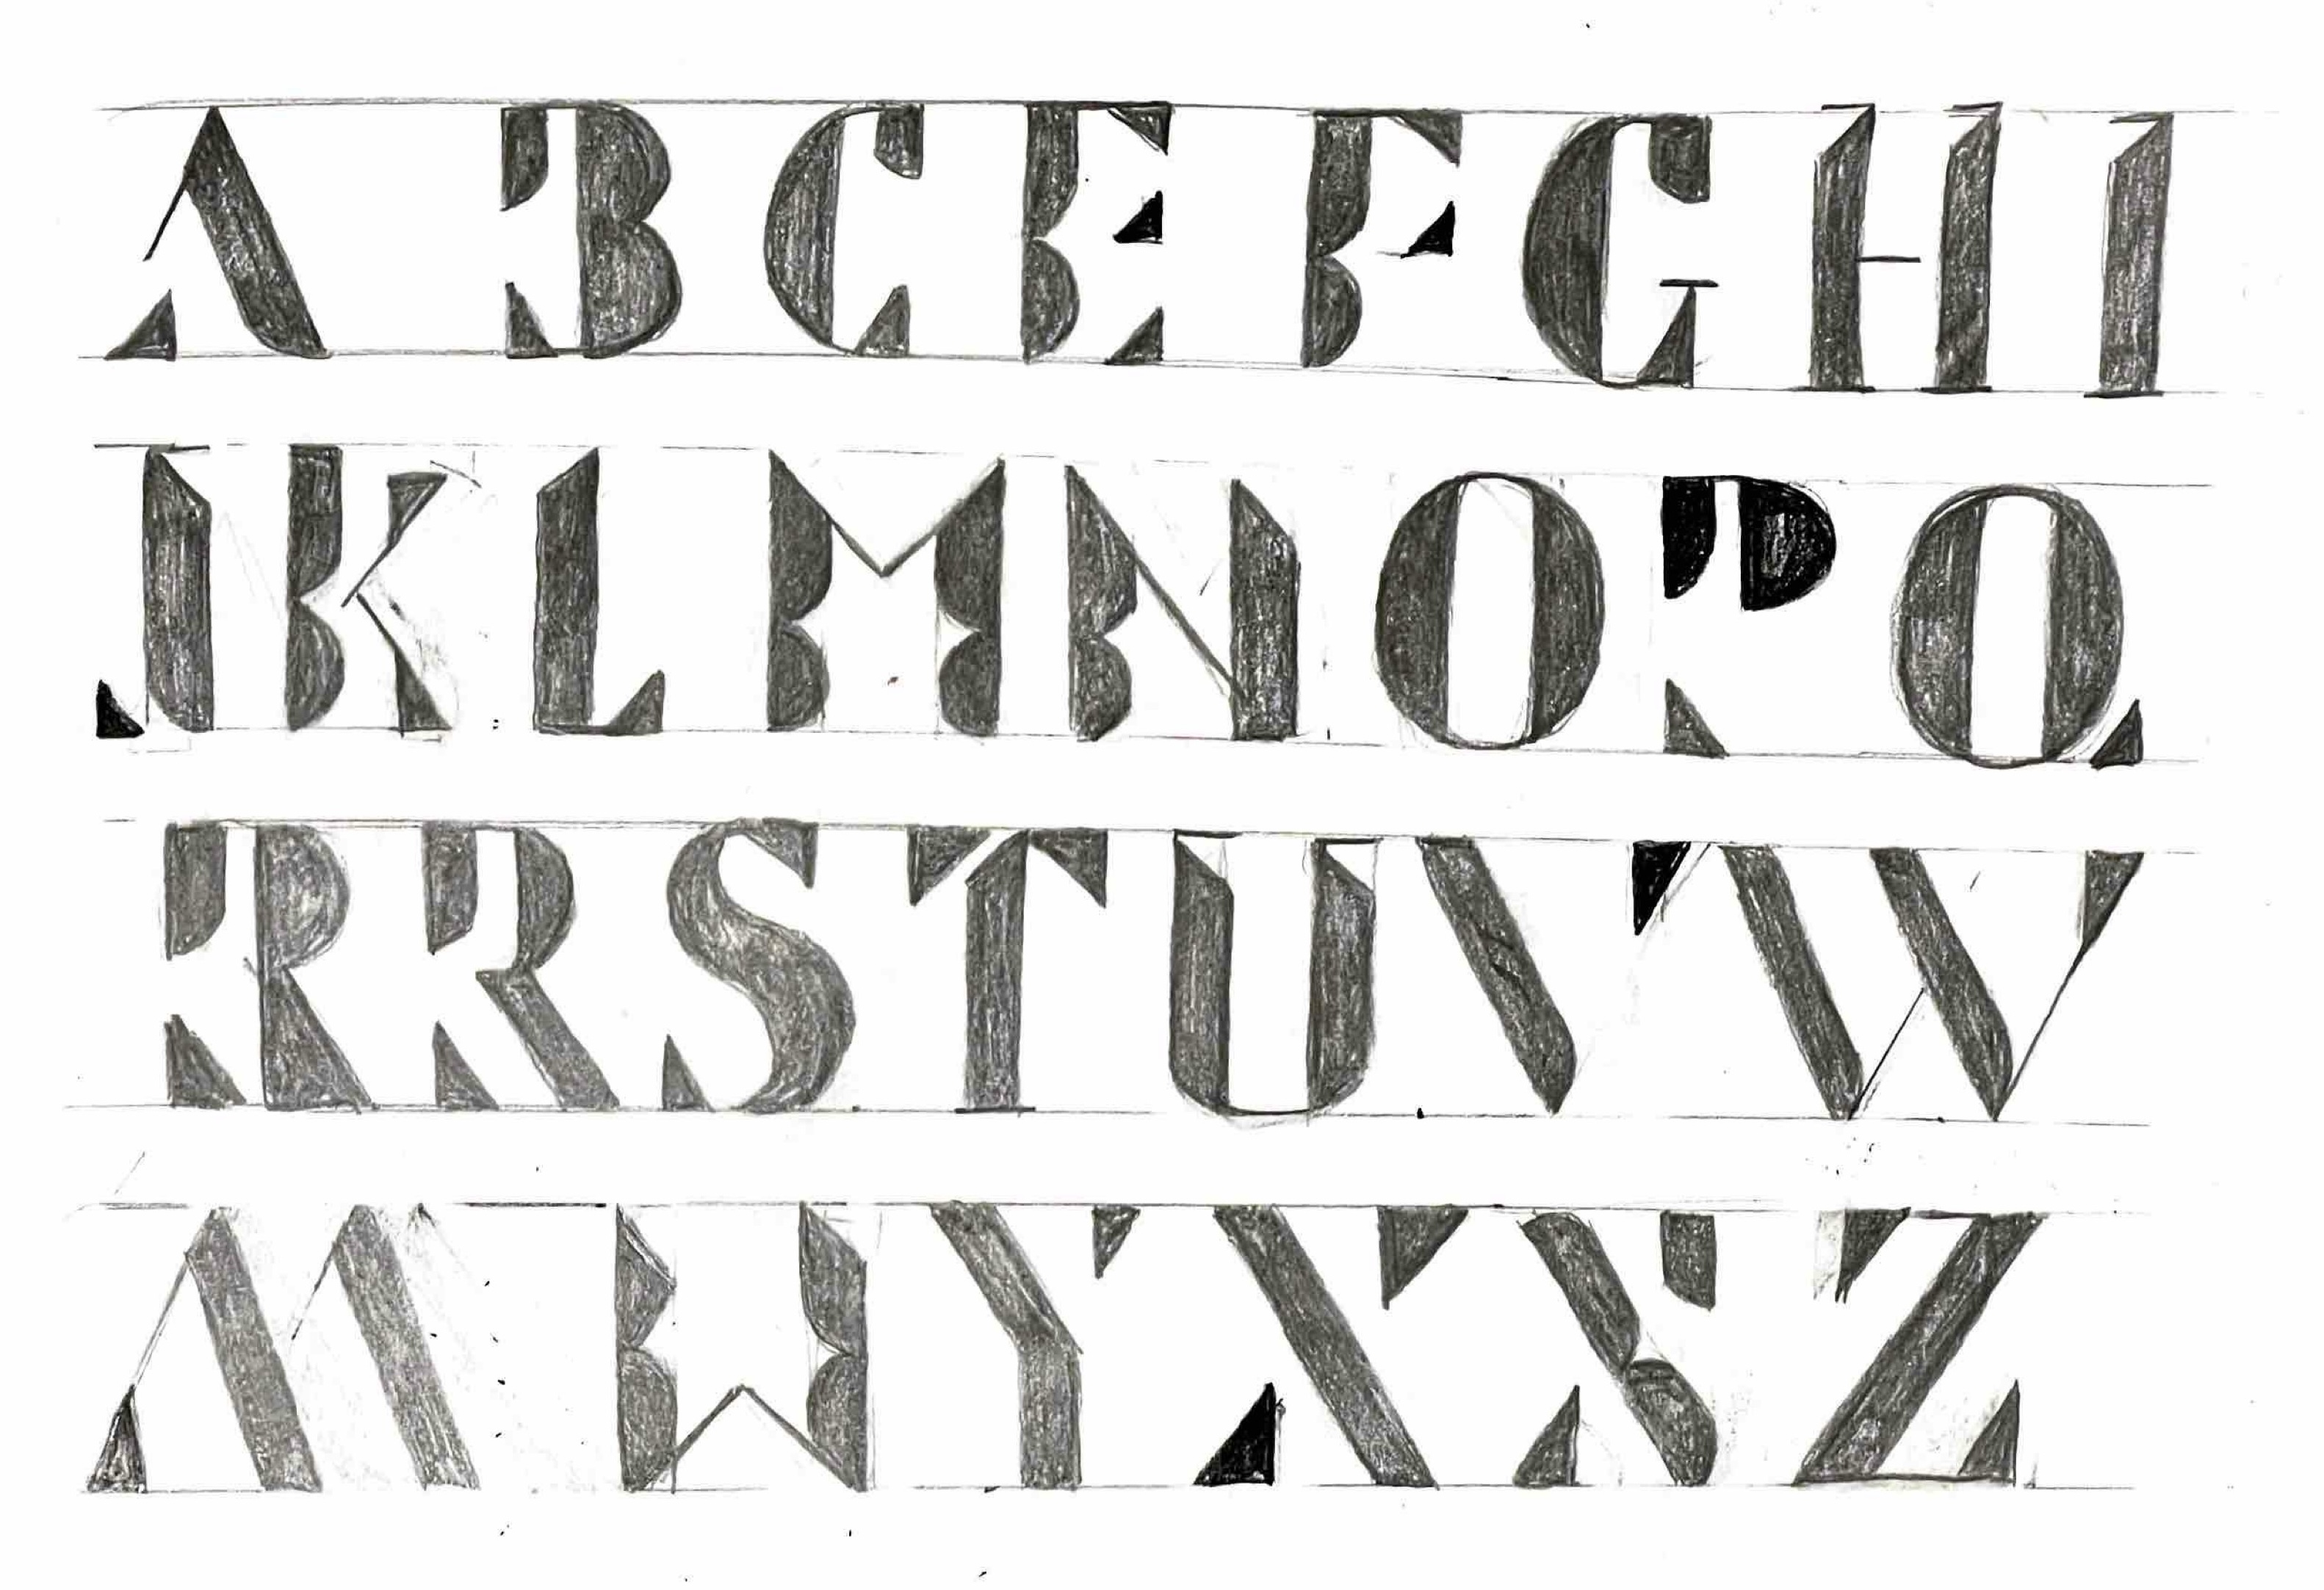 A B C E F G H I
J K L M N O P Q
R R S T U V W
M W Y X X Z